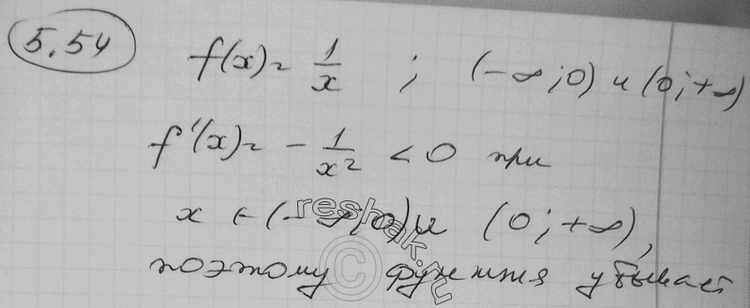 5.54
f(x) = 1/x ; (-∞; 0) и (0; +∞)
f'(x) = - 1/x² < 0 при
x ∈ (-∞; 0) и (0; +∞),
поэтому функция убывает
reshak.ru